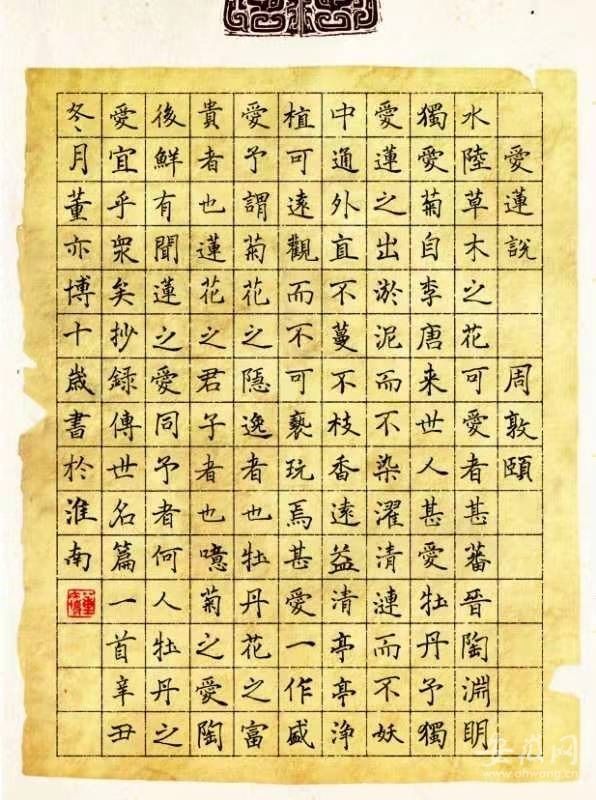 愛蓮說 周敦頤
水陸草木之花可愛者甚蕃晉陶淵明
獨愛菊自李唐來世人甚愛牡丹予獨
愛蓮之出淤泥而不染濯清漣而不妖
中通外直不蔓不枝香遠益清亭亭浄
植可遠觀而不可褻玩焉甚愛一作盛
愛予謂菊花之隱逸者也牡丹花之富
貴者也蓮花之君子者也噫菊之愛陶
後鮮有聞蓮之愛同予者何人牡丹之
愛宜乎衆矣抄録傳世名篇一首辛丑
冬月董亦博十歲書於淮南
安徽网
www.ahwang.cn